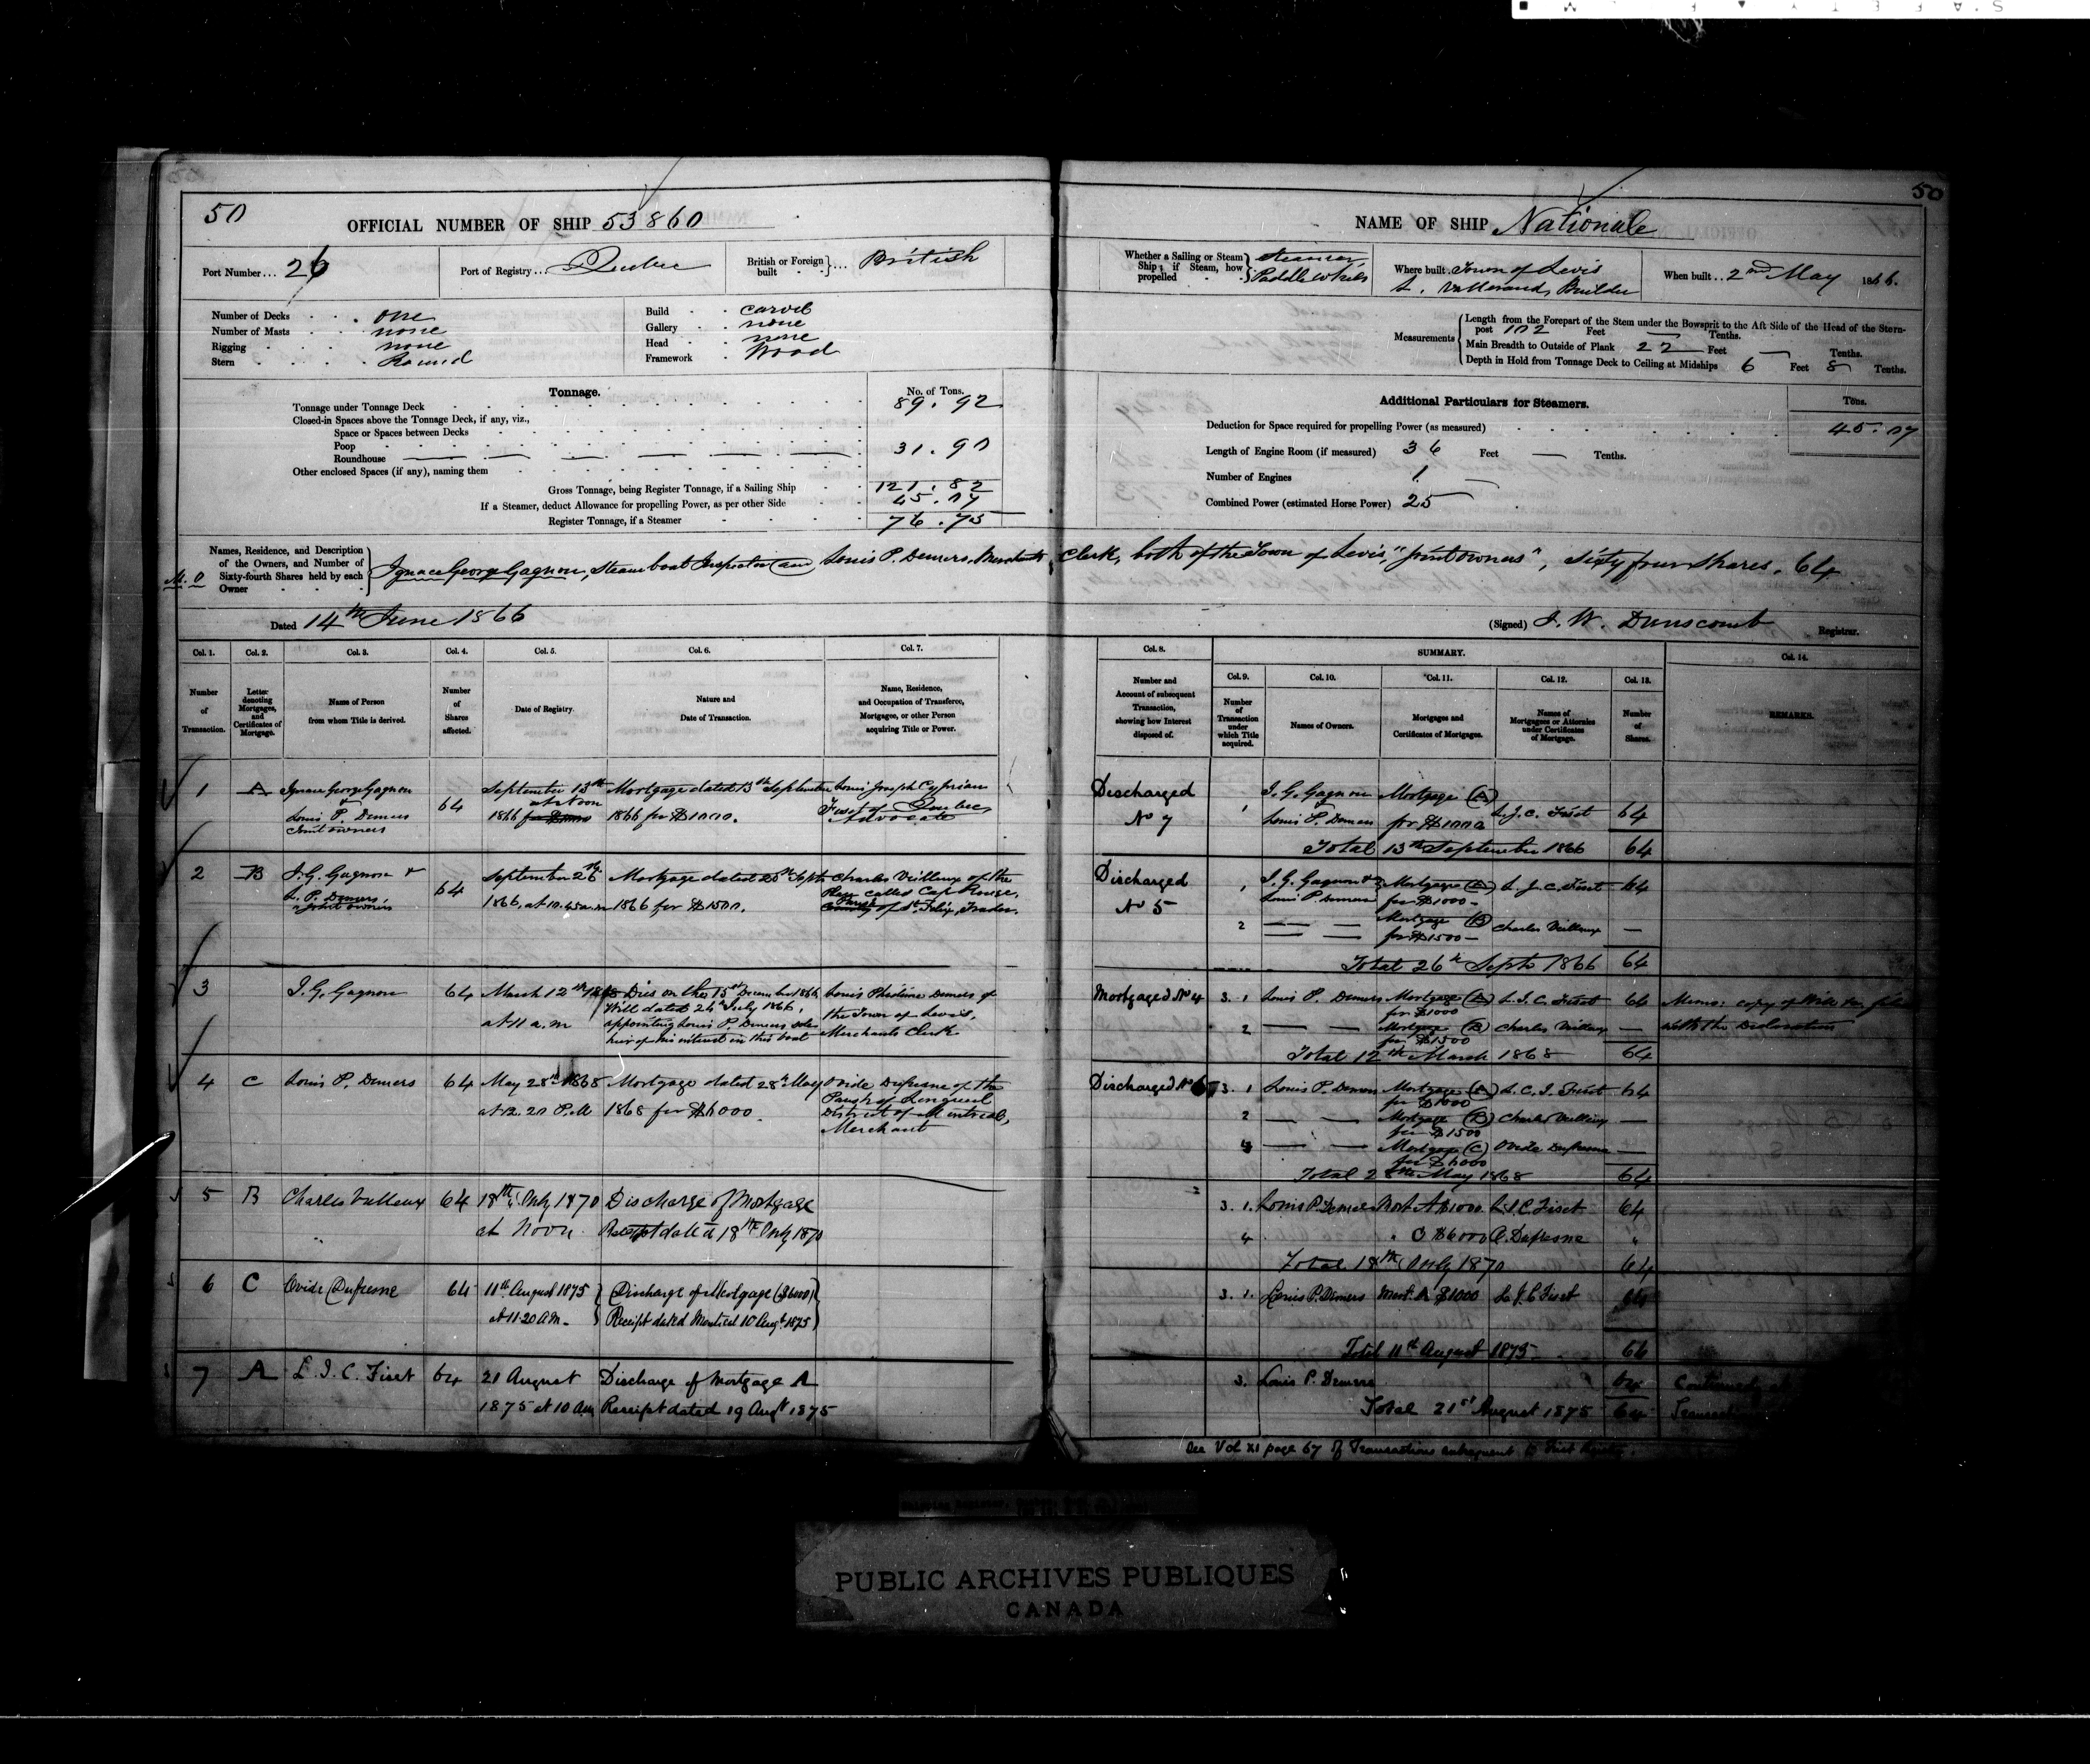 50
50
OFFICIAL NUMBER OF SHIP 53860
NAME OF SHIP Nationale
Port Number... 26
Port of Registry... Quebec
British or Foreign built... British
Whether a Sailing or Steam Ship; if Steam, how propelled Steamer, Paddle Wheels
Where built Town of Levis
Builder
When built.. 2nd May 1866.
Number of Decks one
Number of Masts none
Rigging none
Stern Round
Build carvel
Gallery none
Head none
Framework Wood
Measurements
Length from the Forepart of the Stem under the Bowsprit to the Aft Side of the Head of the Stern-
post 102 Feet — Tenths.
Main Breadth to Outside of Plank 22 Feet — Tenths.
Depth in Hold from Tonnage Deck to Ceiling at Midships 6 Feet 8 Tenths.
Tonnage.
No. of Tons.
Tonnage under Tonnage Deck 89.92
Closed-in Spaces above the Tonnage Deck, if any, viz.,
Space or Spaces between Decks
Poop 31.90
Roundhouse
Other enclosed Spaces (if any), naming them
Gross Tonnage, being Register Tonnage, if a Sailing Ship 121.82
If a Steamer, deduct Allowance for propelling Power, as per other Side 45.07
Register Tonnage, if a Steamer 76.75
Additional Particulars for Steamers.
Tons.
Deduction for Space required for propelling Power (as measured) 45.07
Length of Engine Room (if measured) 36 Feet — Tenths.
Number of Engines 1
Combined Power (estimated Horse Power) 25
Names, Residence, and Description of the Owners, and Number of Sixty-fourth Shares held by each Owner
Ignace George Gagnon, Steamboat Inspector and Louis P. Demers, Merchants Clerk, both of the Town of Levis, "joint owners", Sixty four Shares. 64
Dated 14th June 1866
(Signed) J. W. Dunscomb Registrar.
Col. 1. Col. 2. Col. 3. Col. 4. Col. 5. Col. 6. Col. 7.
Number of Transaction.
Letter denoting Mortgages, and Certificates of Mortgage.
Name of Person from whom Title is derived.
Number of Shares affected.
Date of Registry.
Nature and Date of Transaction.
Name, Residence, and Occupation of Transferee, Mortgagee, or other Person acquiring Title or Power.
Col. 8.
SUMMARY.
Col. 14.
Col. 9. Col. 10. Col. 11. Col. 12. Col. 13.
Number and Account of subsequent Transaction, showing how Interest disposed of.
Number of Transaction under which Title acquired.
Names of Owners.
Mortgages and Certificates of Mortgages.
Names of Mortgagees or Attornies under Certificates of Mortgage.
Number of Shares.
REMARKS.
1 A Ignace George Gagnon & Louis P. Demers Joint owners 64
September 13th 1866 at Noon
Mortgage dated 13th September 1866 for $1000.
Louis Joseph Cyprian Fiset of Quebec Advocate
Discharged No 7
1 I. G. Gagnon Louis P. Demers Mortgage (A) for $1000 L. J. C. Fiset 64
Total 13th September 1866 64
2 B I. G. Gagnon & L. P. Demers joint owners 64
September 26th 1866, at 10.45 a.m
1866 for $1500.
Charles Veilleux of the Place called Cap Rouge, of St. Felix, Trader.
Discharged No 5
1 I. G. Gagnon & Louis P. Demers Mortgage (A) for $1000 L. J. C. Fiset 64
2 Mortgage (B) for $1500 Charles Veilleux —
Total 26th Septr 1866 64
3 I. G. Gagnon 64 March 12th 1868 at 11 a.m
Will dated 24th July 1866, appointing Louis P. Demers sole heir of his interest in this boat
Demers of the Town of Levis, Merchants Clerk
Mortgaged No 4
3.1 Louis P. Demers Mortgage (A) for $1000 L. J. C. Fiset 64
2 Mortgage (B) for $1500 Charles Veilleux —
Total 12th March 1868 64
Memo: copy of Will
with the Declaration
4 C Louis P. Demers 64 May 28th 1868 at 12.20 P.M
Mortgage dated 28th May 1868 for $6000
Ovide Dufresne of the Parish of Longueuil District of Montreal, Merchant
Discharged No 6
3.1 Louis P. Demers Mortgage (A) for $1000 Fiset 64
2 Mortgage (B) for $1500 Charles Veilleux —
4 Mortgage (C) for $6000 Ovide Dufresne —
Total 28th May 1868 64
5 B Charles Veilleux 64 18th July 1870 at Noon
Discharge of Mortgage
Receipt dated 18th July 1870
3.1. Louis P. Demers Mort A $1000 L. J. C. Fiset 64
4 " C $6000 O. Dufresne "
Total 18th July 1870 64
6 C Ovide Dufresne 64 11th August 1875 at 11.20 AM
Discharge of Mortgage ($6000)
Receipt dated Montreal 10 Augt. 1875
3.1. Louis P. Demers Mort. A $1000 L. J. C. Fiset 64
Total 11th August 1875 64
7 A L. J. C. Fiset 64 21 August 1875 at 10 AM
Discharge of Mortgage A
Receipt dated 19 Augt 1875
3. Louis P. Demers 64
Total 21st August 1875 64
See Vol XI page 67 Transactions subsequent
PUBLIC ARCHIVES PUBLIQUES
CANADA